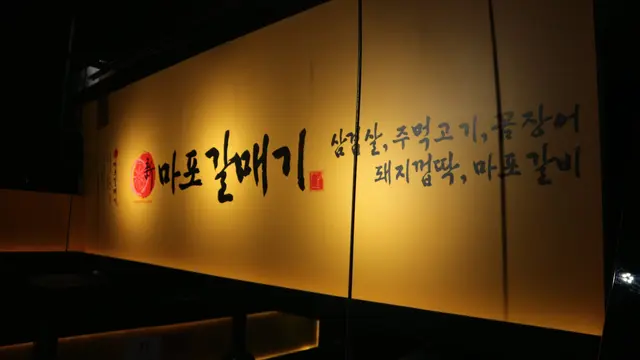 마포갈매기
삼겹살, 주먹고기, 꼼장어
돼지껍딱, 마포갈비